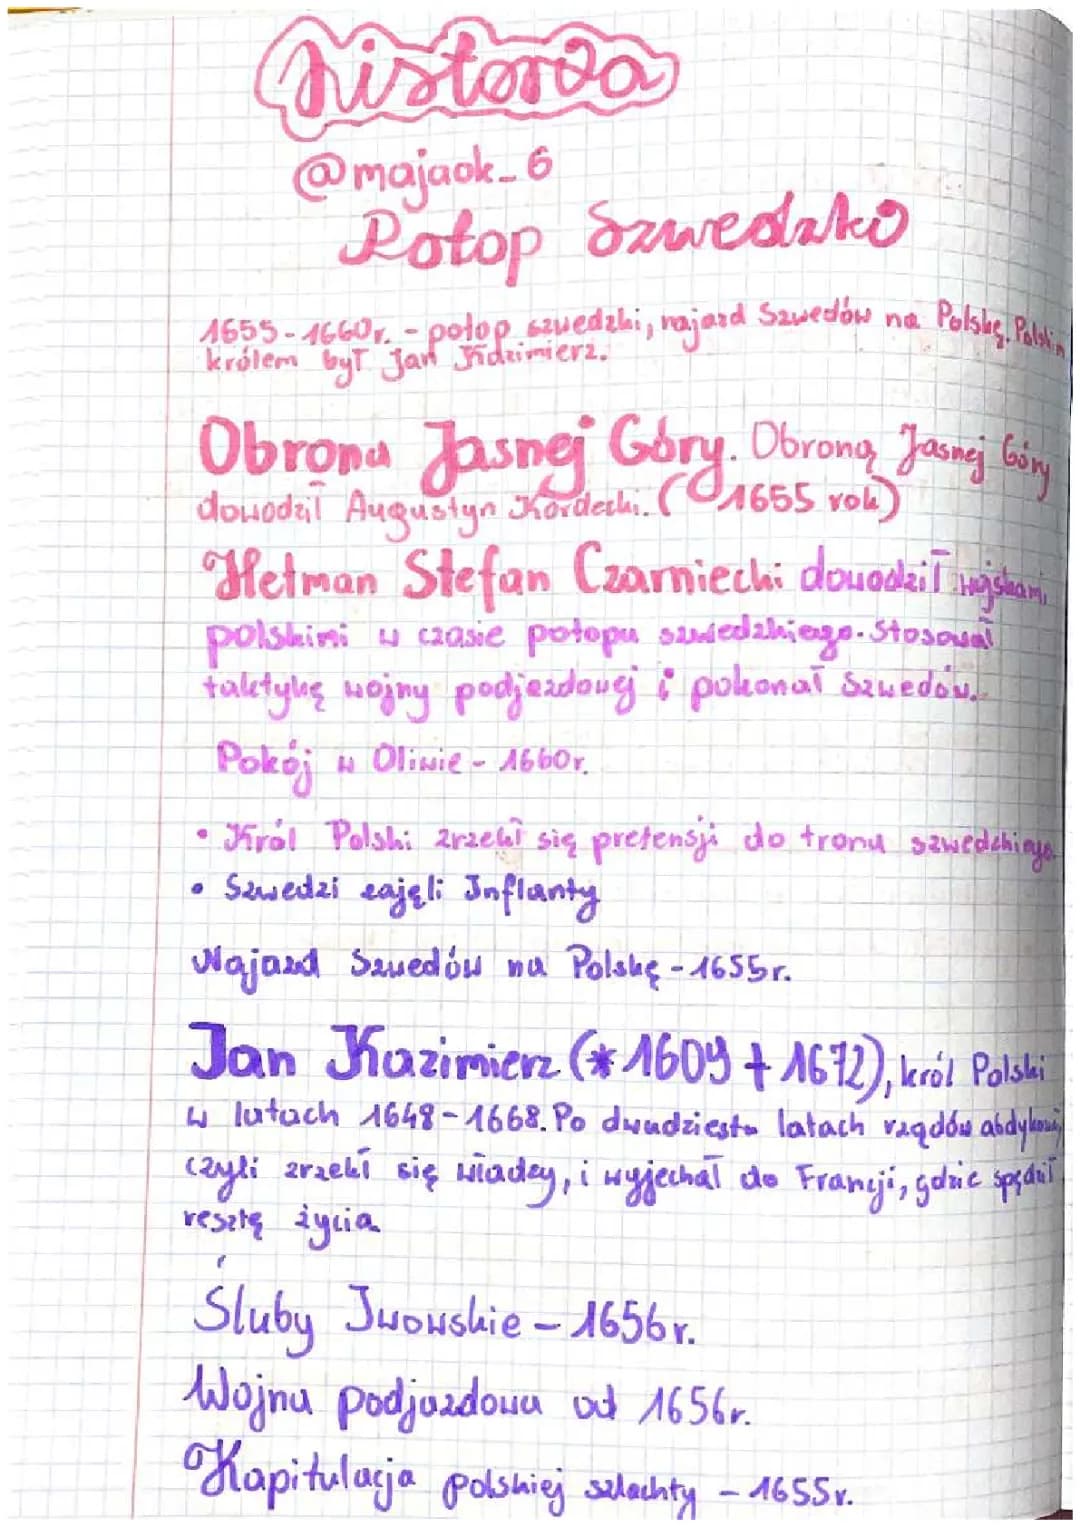 historia
@majaok_6
Potop Szwedzki
1655-1660r. - potop szwedzki, najazd Szwedów na Polskę. Polskim
królem był Jan Kazimierz.
Obrona Jasnej Góry. Obroną Jasnej Góry
dowodził Augustyn Kordecki. (1655 rok)
Hetman Stefan Czarniecki dowodził wojskami
polskimi w czasie potopu szwedzkiego. Stosował
taktykę wojny podjazdowej i pokonał Szwedów.
Pokój w Oliwie - 1660r.
• Król Polski zrzekł się pretensji do tronu szwedzkiego
• Szwedzi zajęli Inflanty
Najazd Szwedów na Polskę - 1655r.
Jan Kazimierz (*1609 + 1672), król Polski
w latach 1648-1668. Po dwudziestu latach rządów abdykował,
czyli zrzekł się władzy, i wyjechał do Francji, gdzie spędził
resztę życia
Śluby Jwowskie - 1656r.
Wojna podjazdowa od 1656r.
Kapitulacja polskiej szlachty - 1655r.